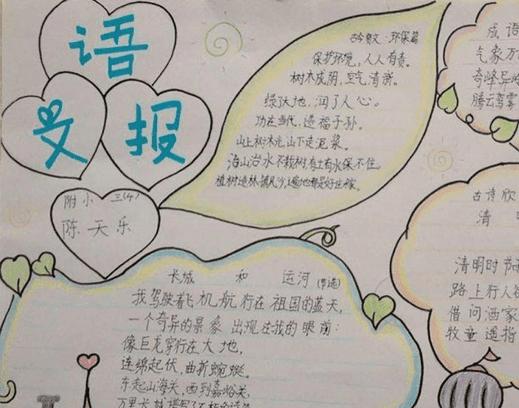 语
文 报
附小 三(4)
陈天乐
古今贤文·环保篇
保护环境，人人有责。
树木成阴，空气清新。
绿了大地，润了人心。
功在当代，造福子孙。
山上树木光，山下走泥浆。
治山治水不栽树，有土有水保不住。
植树造林，遍地都是好庄稼。
长城 和 运河(节选)
我驾驶着飞机航行在祖国的蓝天，
一个奇异的景象出现在我的眼前：
像巨龙穿行在大地，
连绵起伏，曲折蜿蜒。
东起山海关，西到嘉峪关，
万里长城
成语
气象万
奇峰异
腾云驾雾
古诗欣
清 明
清明时节
路上行人
借问酒家
牧童遥指